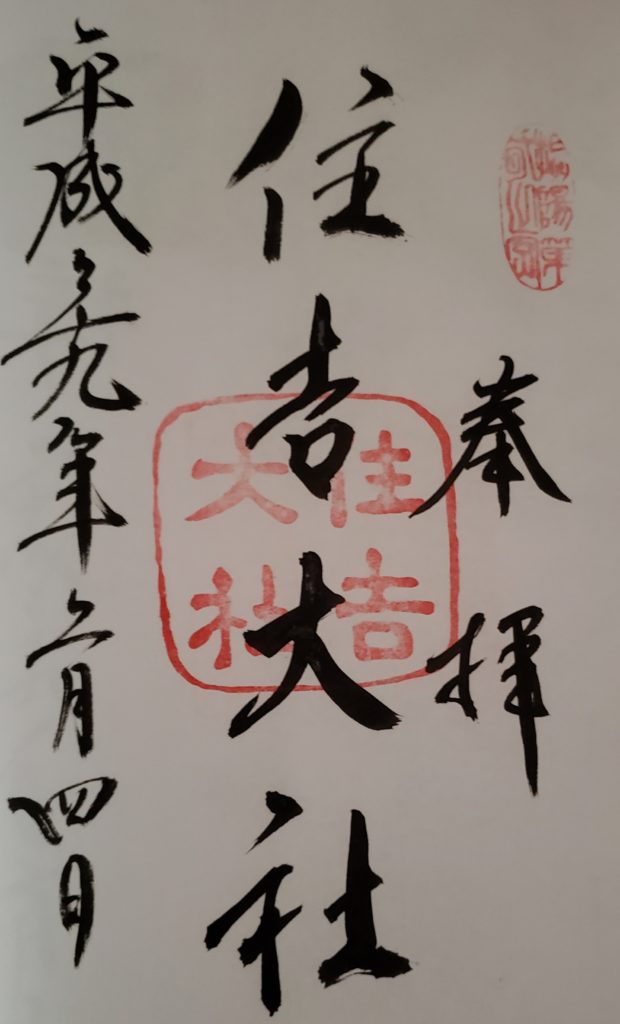 奉拝
住吉大社
住吉
大社
平成二十九年二月四日